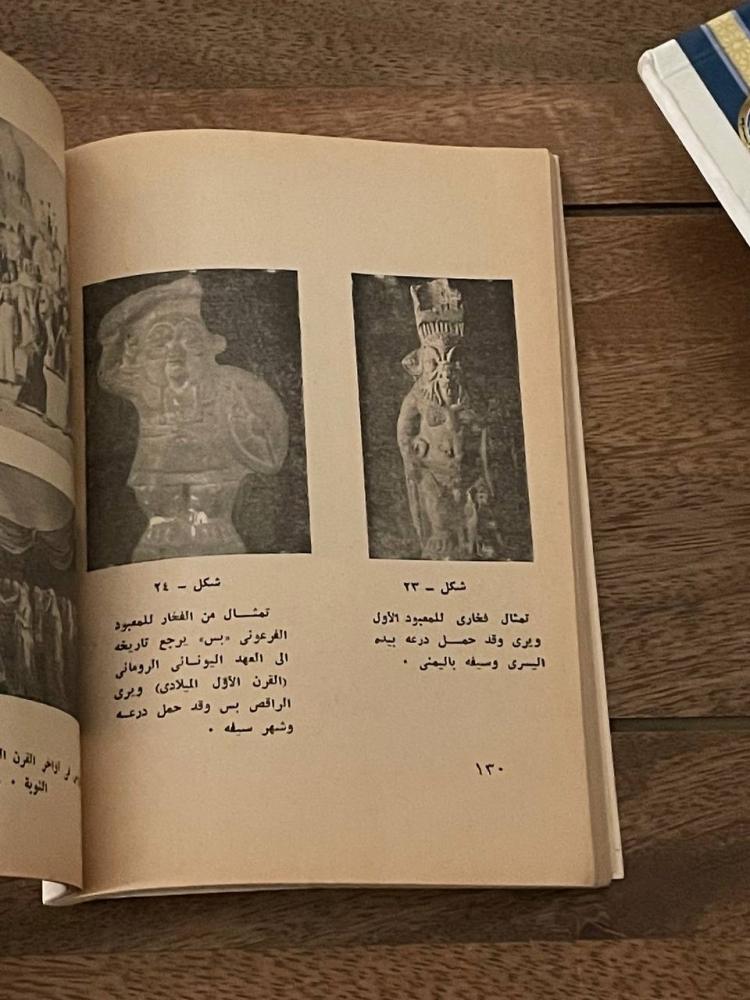 شكل ــ ٢٣
تمثال فخارى للمعبود الأول
ويرى وقد حمـــل درعه بيده
اليسرى وسيفه باليمنى ٠
شكل ــ ٢٤
تمثـــال من الفخار للمعبود
الفرعونى «بس» يرجع تاريخه
الى العهد اليونـانى الرومانى
(القرن الأول الميلادى) ويرى
الراقص بس وقد حمل درعـه
وشهر سيفه ٠
١٣٠
فى اواخر القرن
النوبة ٠